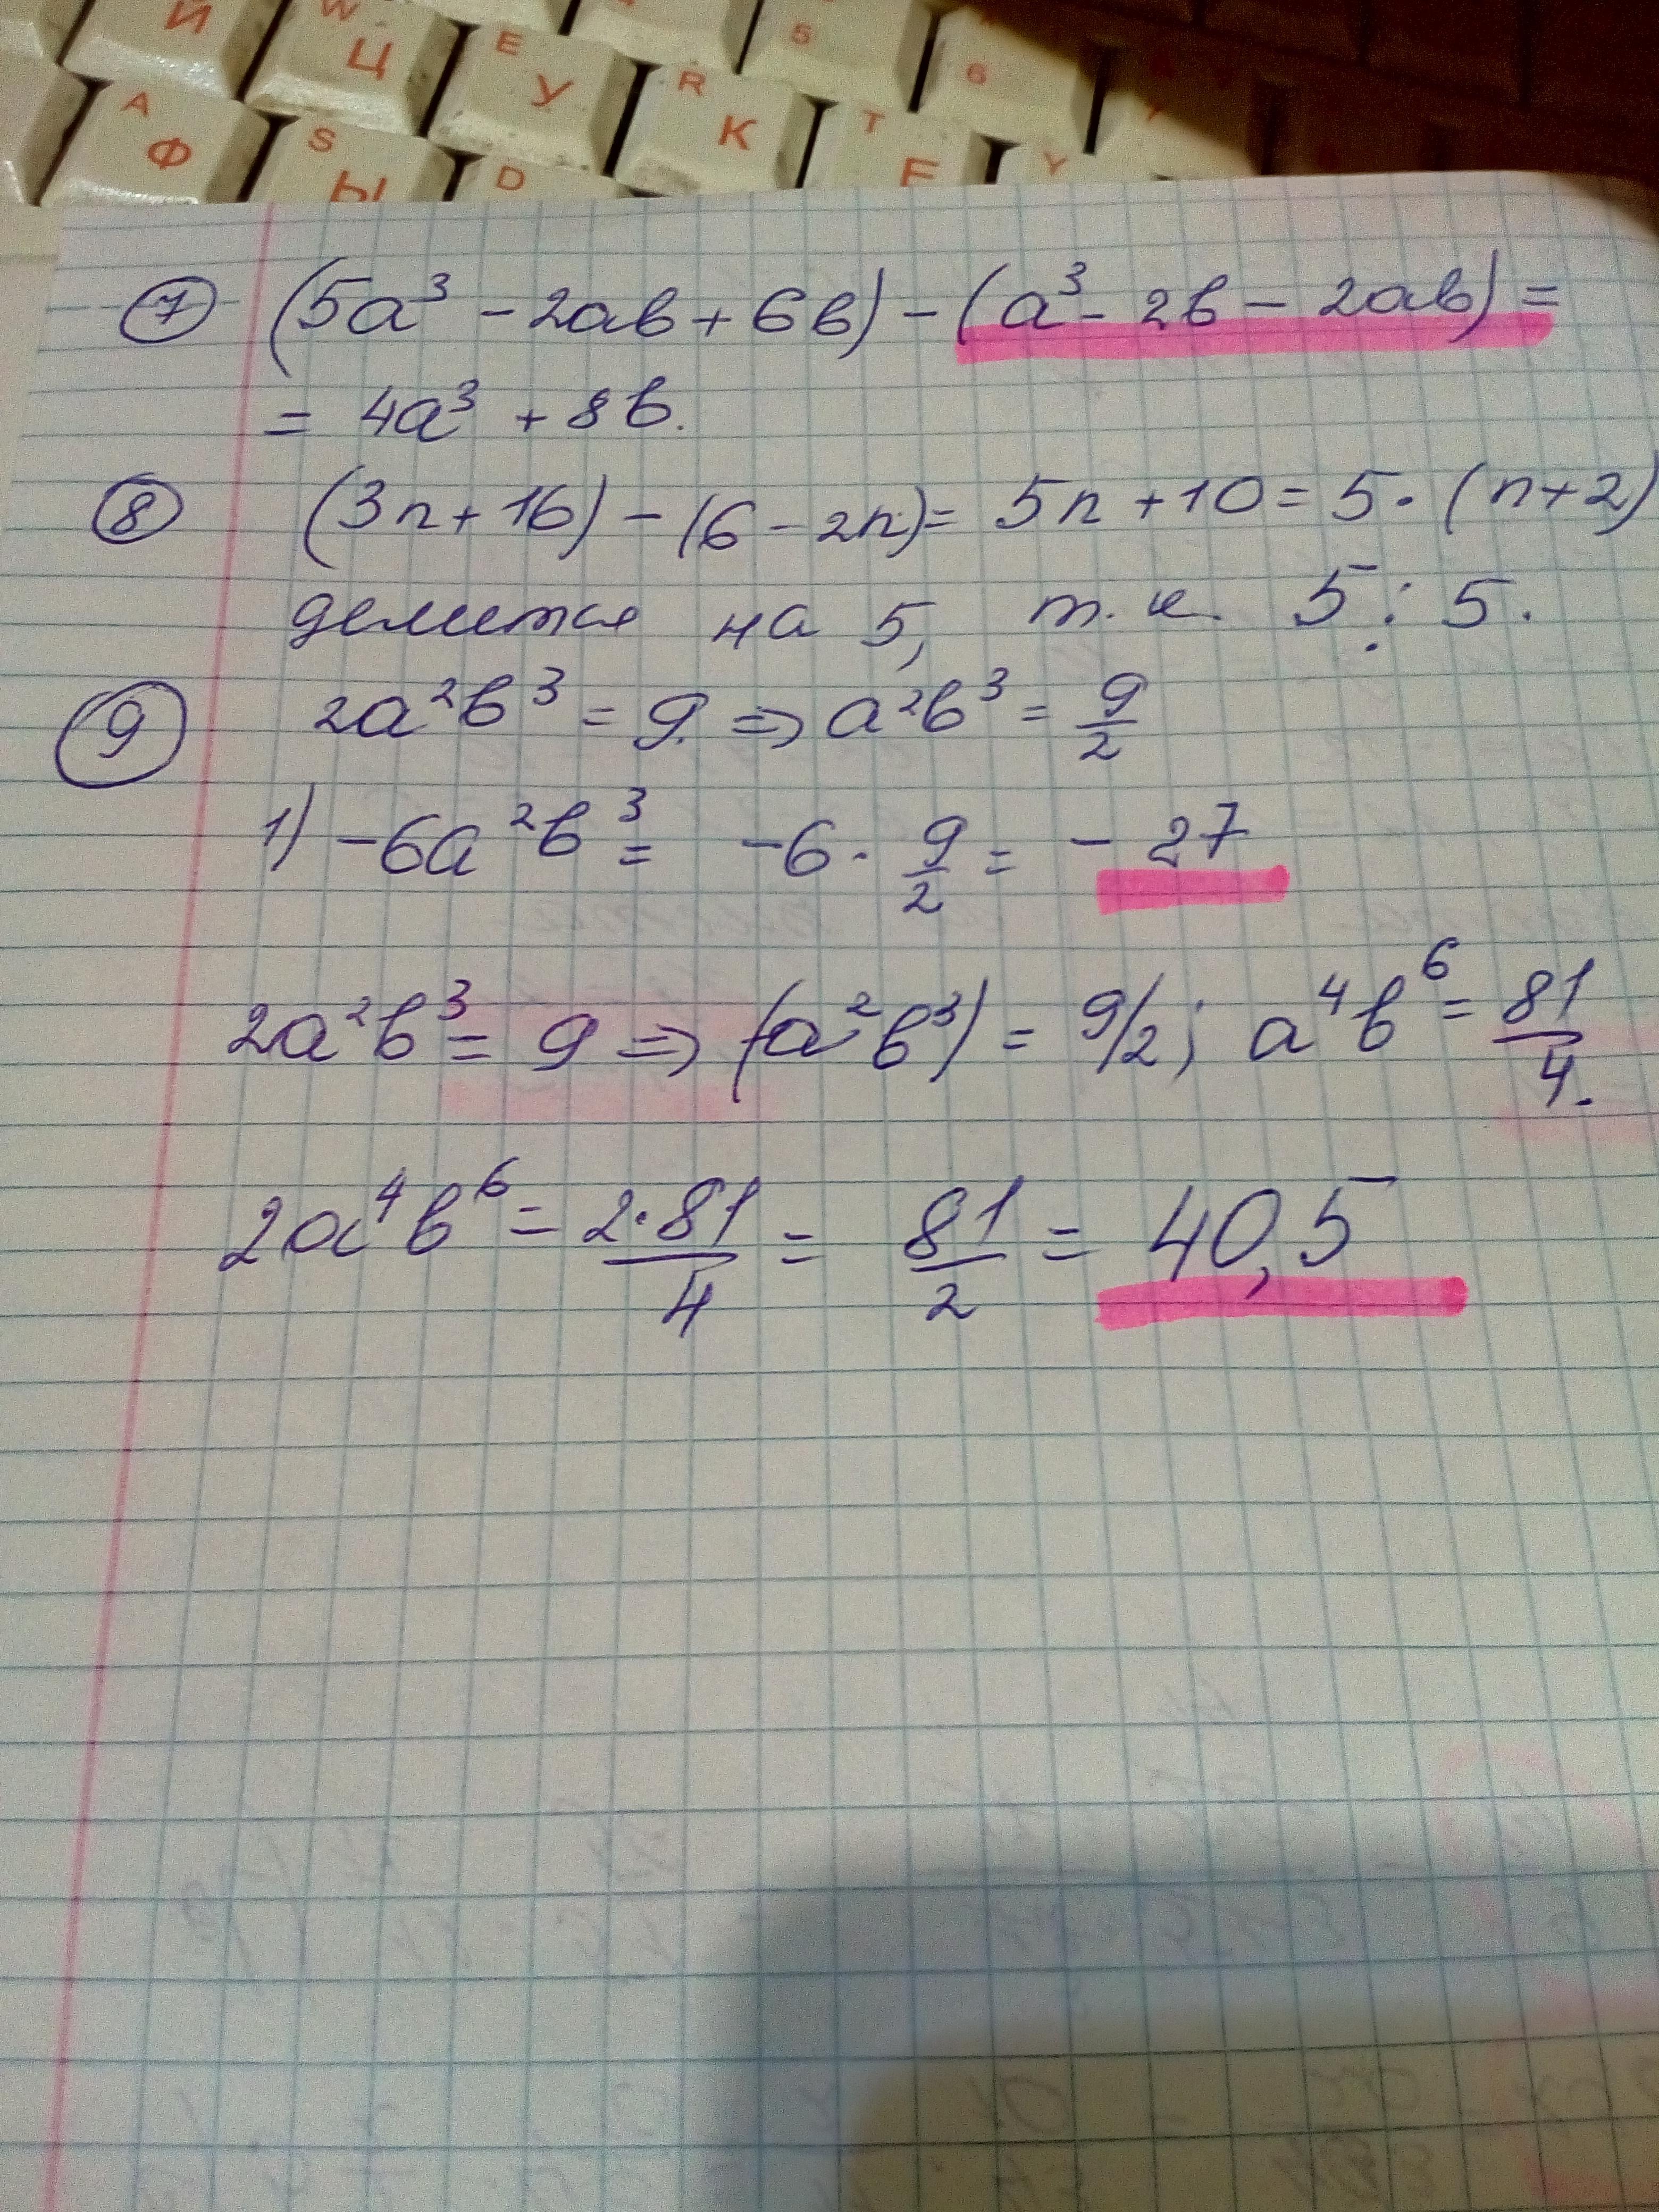 Й W Ц E У R К 5 6
A Ф S Ы D T Е Y
⑦ (5a³ - 2ab + 6b) - (a³ - 2b - 2ab) =
= 4a³ + 8b.
⑧ (3n + 16) - (6 - 2n) = 5n + 10 = 5 · (n + 2)
делится на 5, т.к. 5 ⋮ 5.
⑨ 2a²b³ = 9. ⇒ a²b³ = 9/2
1) -6a²b³ = -6 · 9/2 = -27
2a²b³ = 9 ⇒ (a²b³) = 9/2; a⁴b⁶ = 81/4.
2a⁴b⁶ = 2·81/4 = 81/2 = 40,5